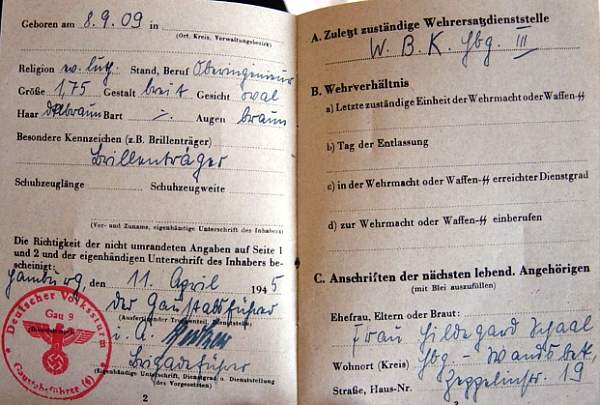 Geboren am 8.9.09 in
(Ort, Kreis, Verwaltungsbezirk)
Religion ev. luth. Stand, Beruf Oberingenieur
Größe 1,75 Gestalt breit Gesicht oval
Haar dklbraun Bart ./. Augen braun
Besondere Kennzeichen (z.B. Brillenträger)
Brillenträger
Schuhzeuglänge Schuhzeugweite
(Vor- und Zuname, eigenhändige Unterschrift des Inhabers)
Die Richtigkeit der nicht umrandeten Angaben auf Seite 1
und 2 und der eigenhändigen Unterschrift des Inhabers be-
scheinigt:
Hamburg, den 11. April 1945
der Gaustabsführer
(Ausfertigender Truppenteil, Dienststelle)
i. A.
Brigadeführer
(Eigenhändige Unterschrift, Dienstgrad u. Dienststellung
des Vorgesetzten)
Deutscher Volkssturm
Gau 9
2
A. Zuletzt zuständige Wehrersatzdienststelle
W. B. K. Hbg. III
B. Wehrverhältnis
a) Letzte zuständige Einheit der Wehrmacht oder Waffen-SS
b) Tag der Entlassung
c) in der Wehrmacht oder Waffen-SS erreichter Dienstgrad
d) zur Wehrmacht oder Waffen-SS einberufen
C. Anschriften der nächsten lebend. Angehörigen
(mit Blei auszufüllen)
Ehefrau, Eltern oder Braut:
Frau Hildegard Schaal
Wohnort (Kreis) Hbg - Wandsbek,
Straße, Haus-Nr. Zeppelinstr. 19
3